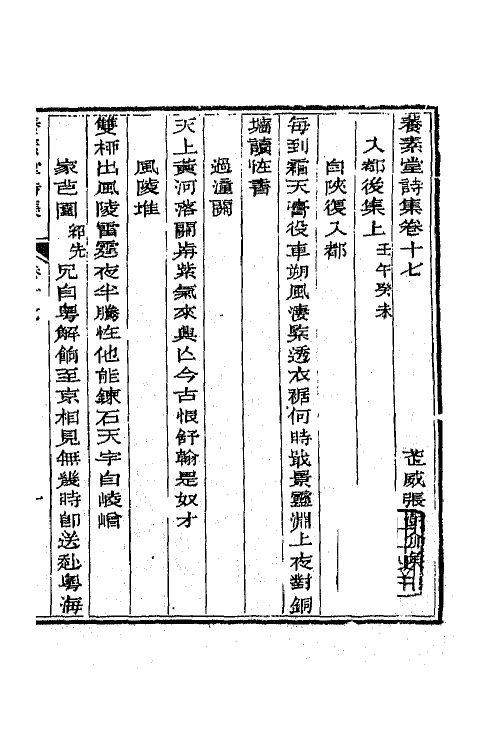 養素堂詩集卷十七 武威張
入都後集上 壬午癸未
自陝復入都
每到霜天賫役車朔風淒緊透衣裾何時戢景靈淵上夜對銅
墻讀怪書
過潼關
天上黃河落關前紫氣來興亡今古恨舒翰是奴才
風陵堆
雙柳出風陵雷霆夜半騰怪他能鍊石天宇自崚嶒
家芭園 兄自粵解餉至京相見無幾時即送赴粵海